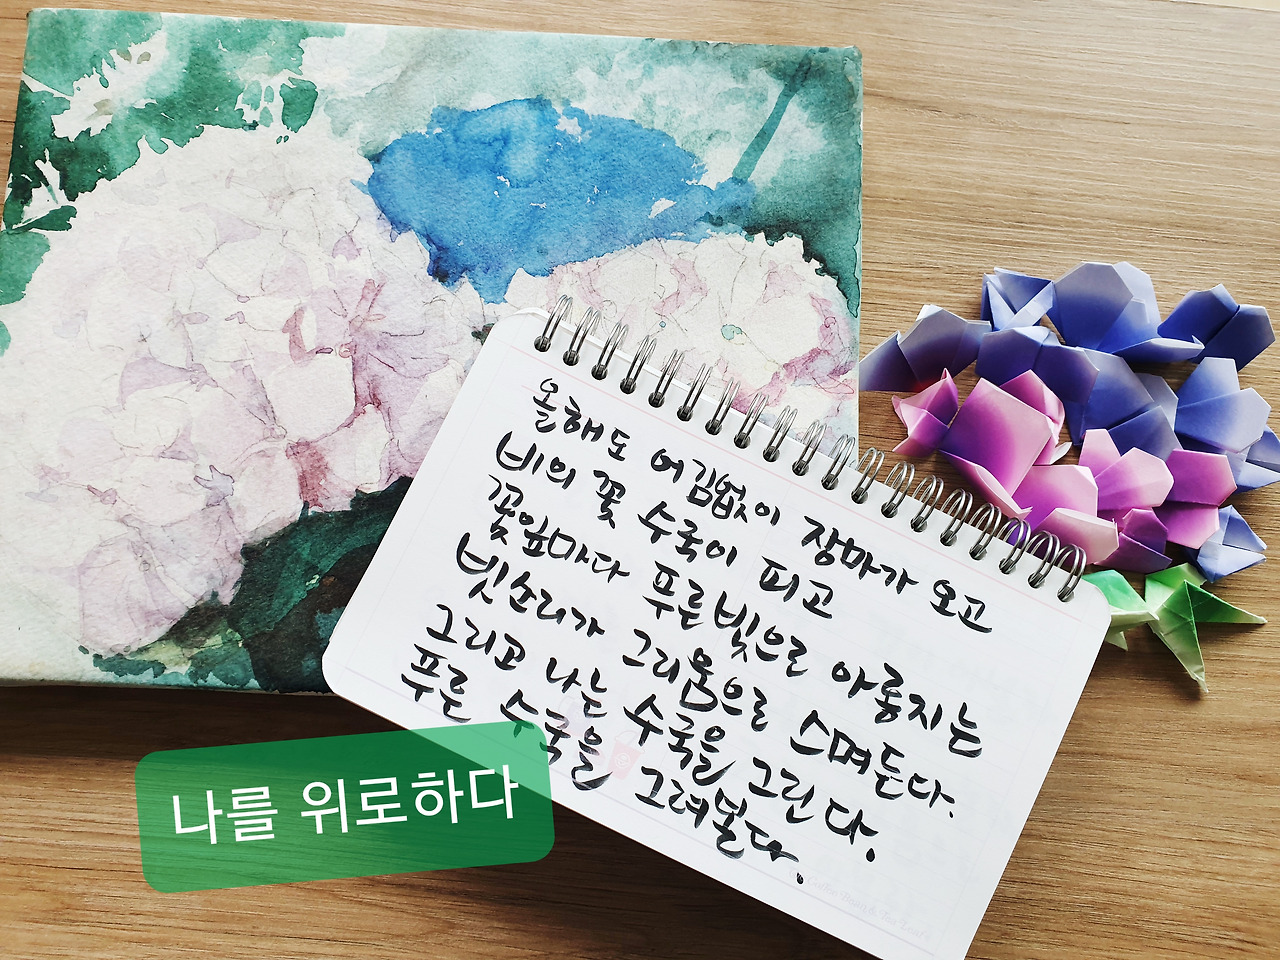 올해도 어김없이 장마가 오고
비의 꽃 수국이 피고
꽃잎마다 푸른빛으로 아롱지는
빗소리가 그리움으로 스며든다.
그리고 나는 수국을 그린다.
푸른 수국을 그려본다.
나를 위로하다